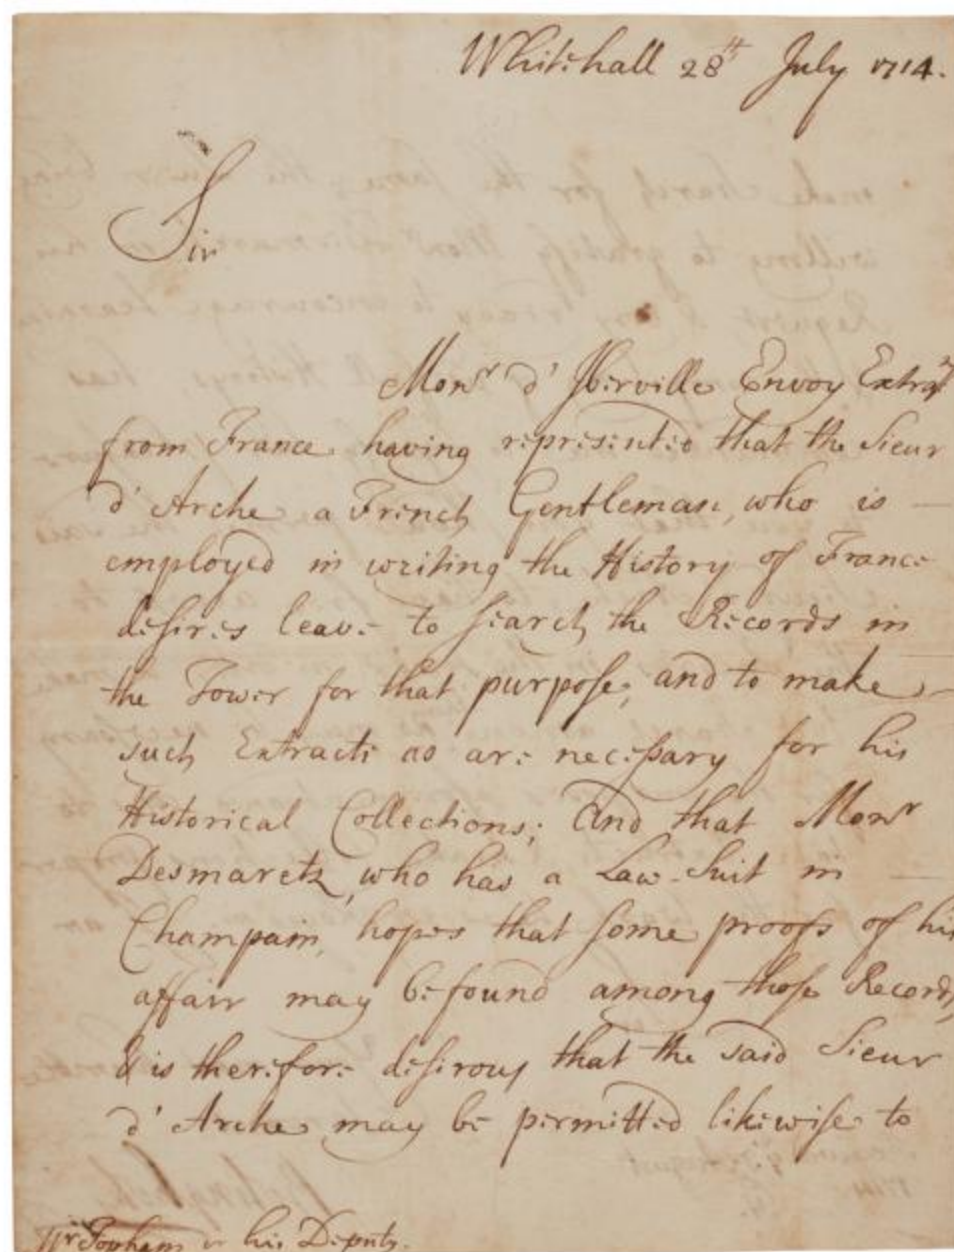 Whitehall 28th July 1714.
Sir
Monr d' Iberville Envoy Extrary
from France having represented that the Sieur
d' Arche a French Gentleman, who is —
employed in writing the History of France
desires leave to search the Records in
the Tower for that purpose, and to make —
such Extracts as are necessary for his
Historical Collections; And that Monr
Desmaretz, who has a Law-Suit in —
Champain, hopes that some proofs of his
affair may be found among those Records,
& is therefore desirous that the said Sieur
d' Arche may be permitted likewise to
Mr Topham or his Deputy.